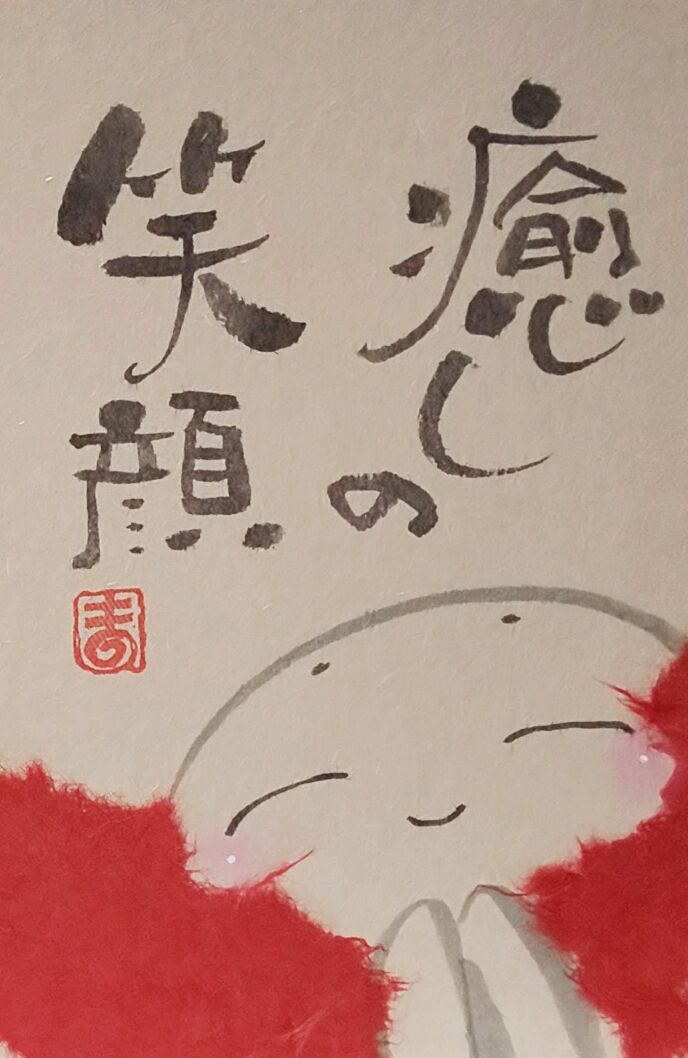 癒しの
笑顔